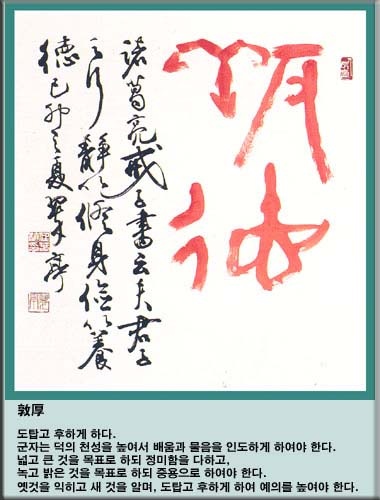 諸葛亮戒子書云夫君子
之行靜以脩身儉以養
德己卯之夏
敦厚
도탑고 후하게 하다.
군자는 덕의 천성을 높여서 배움과 물음을 인도하게 하여야 한다.
넓고 큰 것을 목표로 하되 정미함을 다하고,
녹고 밝은 것을 목표로 하되 중용으로 하여야 한다.
옛것을 익히고 새 것을 알며, 도탑고 후하게 하여 예의를 높여야 한다.